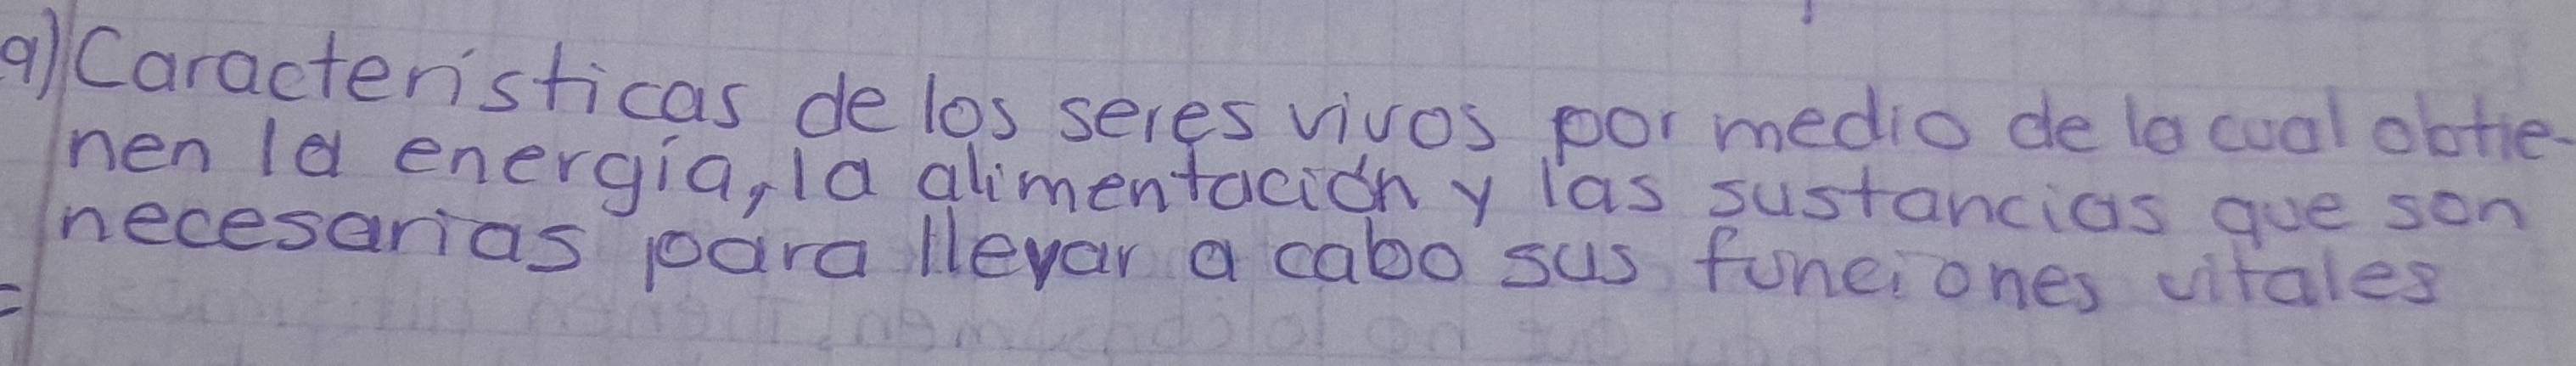 9) Características de los seres vivos por medio de la cual obtie-
nen la energía, la alimentación y las sustancias que son
necesarias para llevar a cabo sus funciones vitales